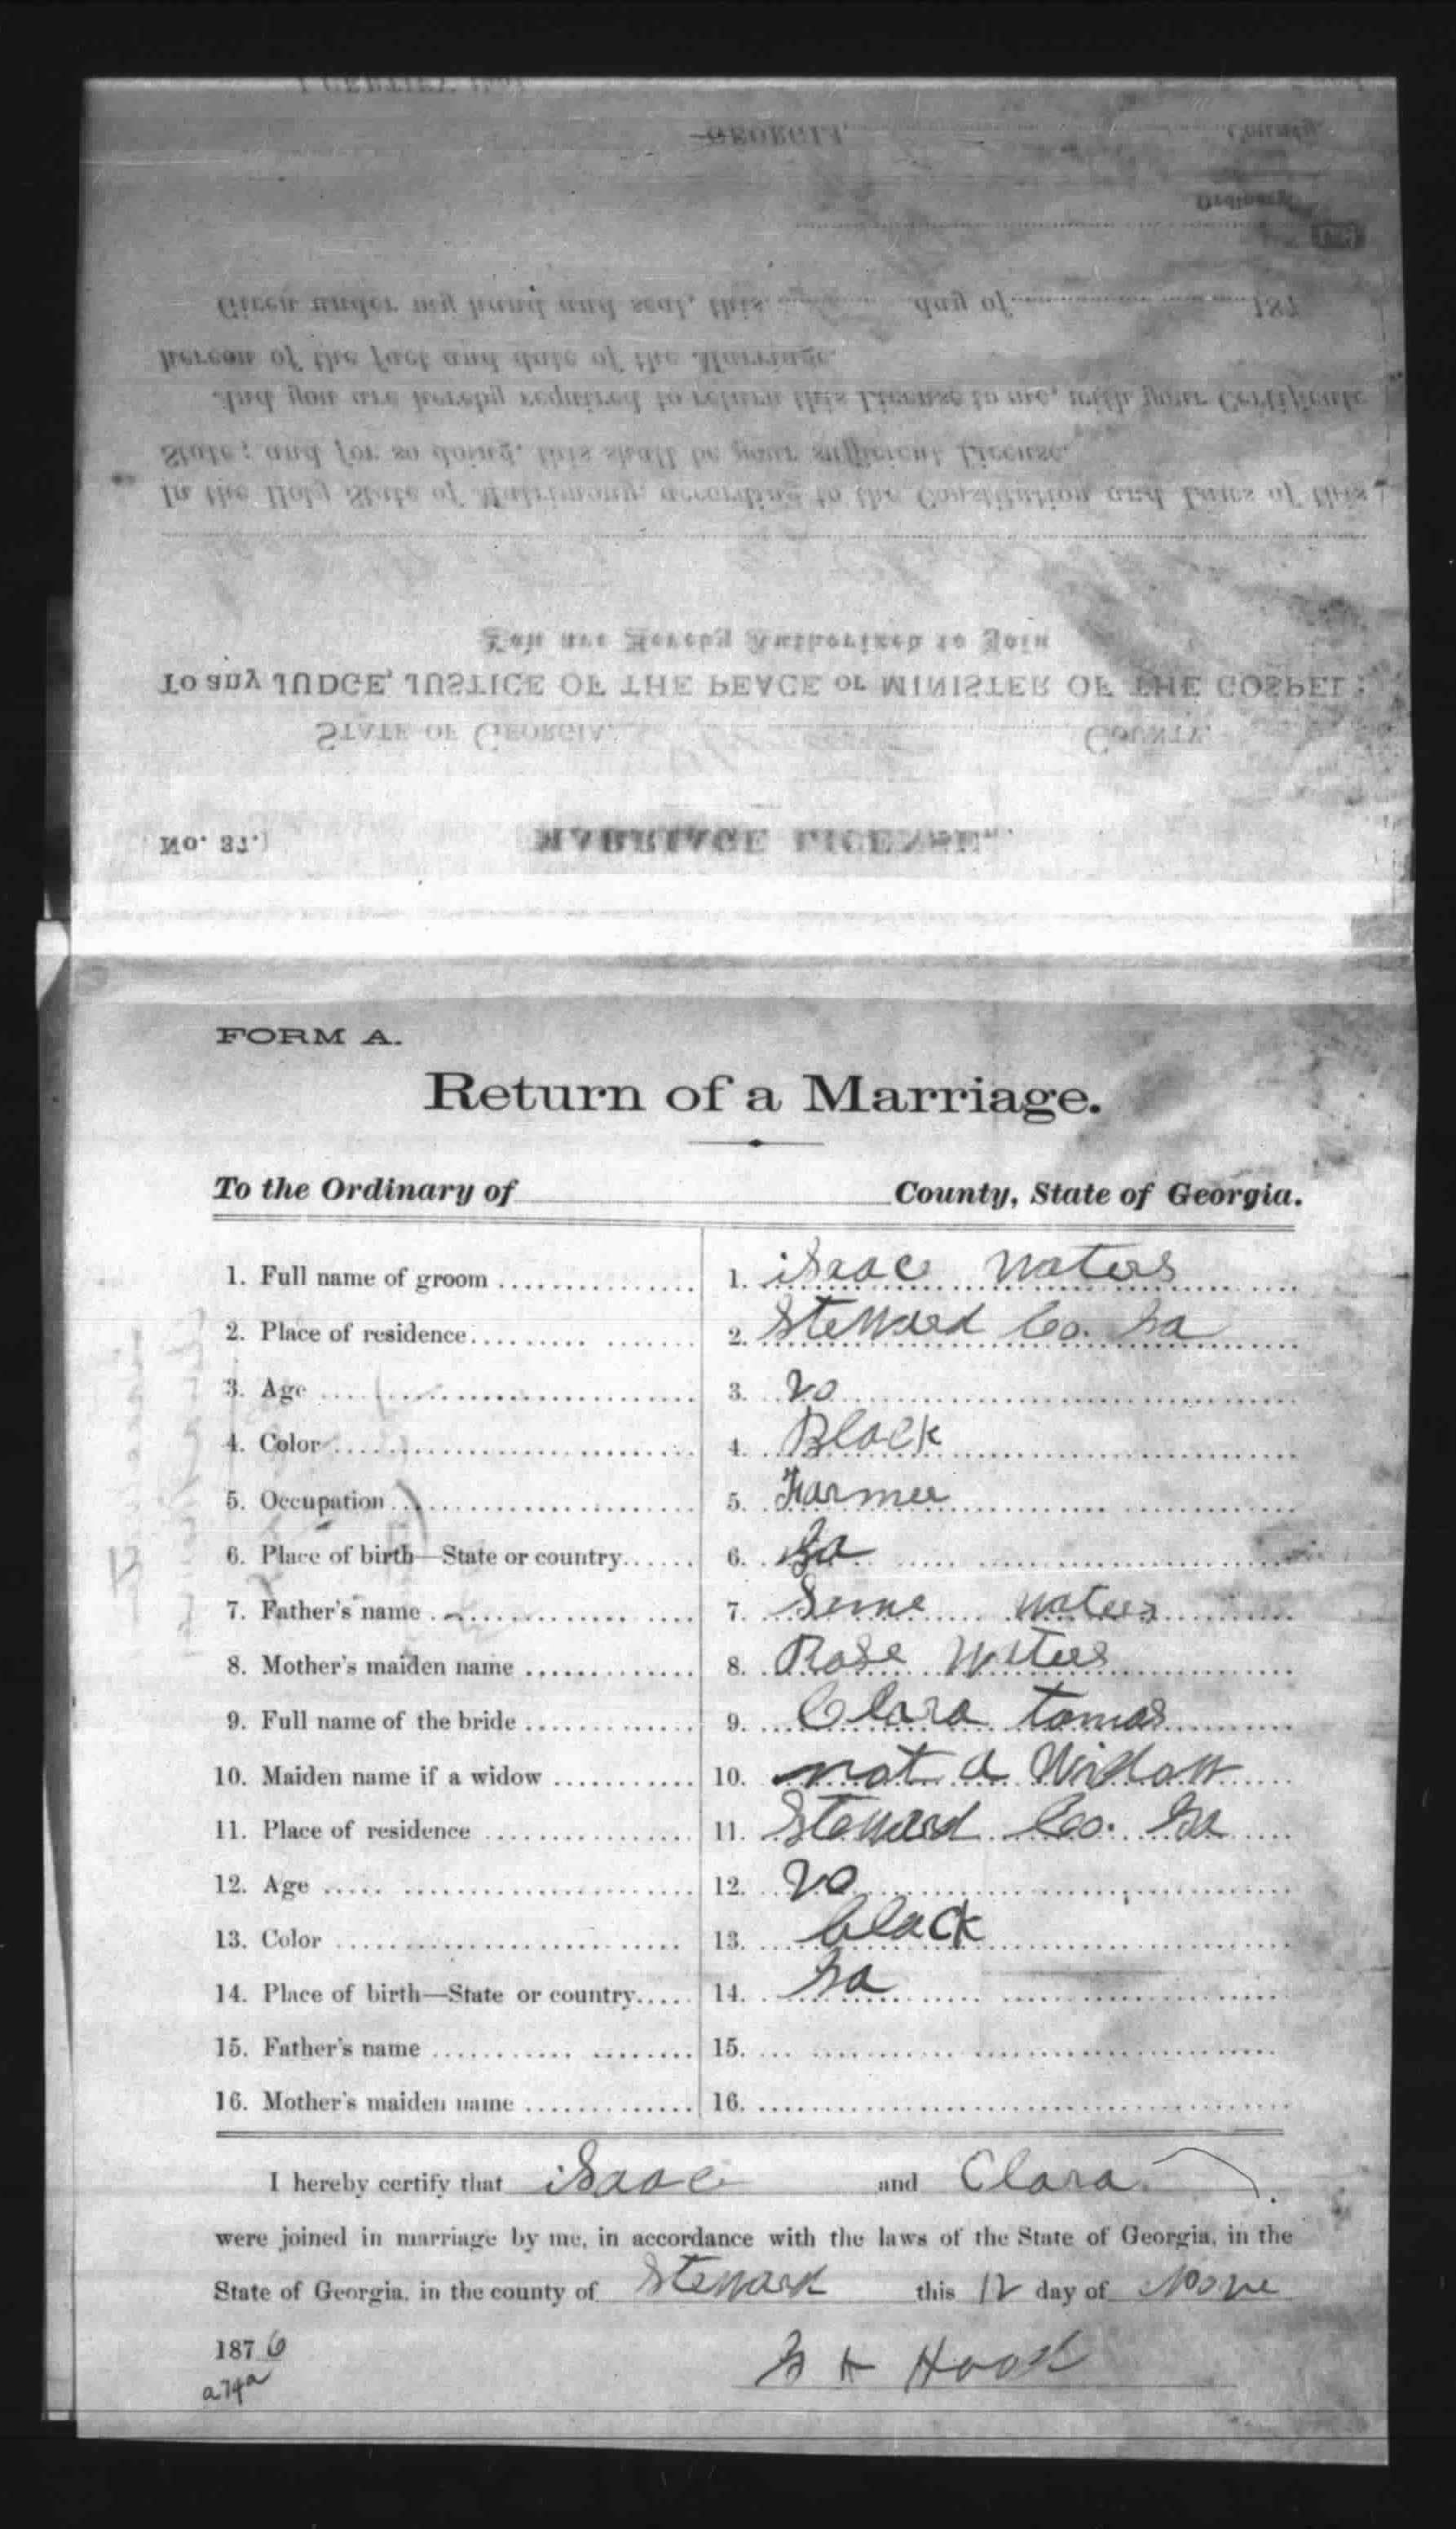 I CERTIFY that
GEORGIA, County.
Ordinary.
Given under my hand and seal, this day of 187
hereon of the fact and date of the Marriage.
And you are hereby required to return this License to me, with your Certificate
State; and for so doing, this shall be your sufficient License.
In the Holy State of Matrimony, according to the Constitution and Laws of this
You are Hereby Authorized to Join
To any JUDGE, JUSTICE OF THE PEACE or MINISTER OF THE GOSPEL:
STATE OF GEORGIA, COUNTY.
No. 37.) MARRIAGE LICENSE.
FORM A.
Return of a Marriage.
To the Ordinary of County, State of Georgia.
1. Full name of groom 1. isaac Waters
2. Place of residence 2. Steward Co. Ga
3. Age 3. 20
4. Color 4. Black
5. Occupation 5. Farmer
6. Place of birth—State or country 6. Ga
7. Father's name 7. Waters
8. Mother's maiden name 8. Rose Waters
9. Full name of the bride 9. Clara tomas
10. Maiden name if a widow 10. not a Widow
11. Place of residence 11. Steward Co. Ga
12. Age 12. 20
13. Color 13. black
14. Place of birth—State or country 14. Ga
15. Father's name 15.
16. Mother's maiden name 16.
I hereby certify that isaac and Clara
were joined in marriage by me, in accordance with the laws of the State of Georgia, in the
State of Georgia, in the county of Steward this 12 day of Nove
1876 Hook
a74a